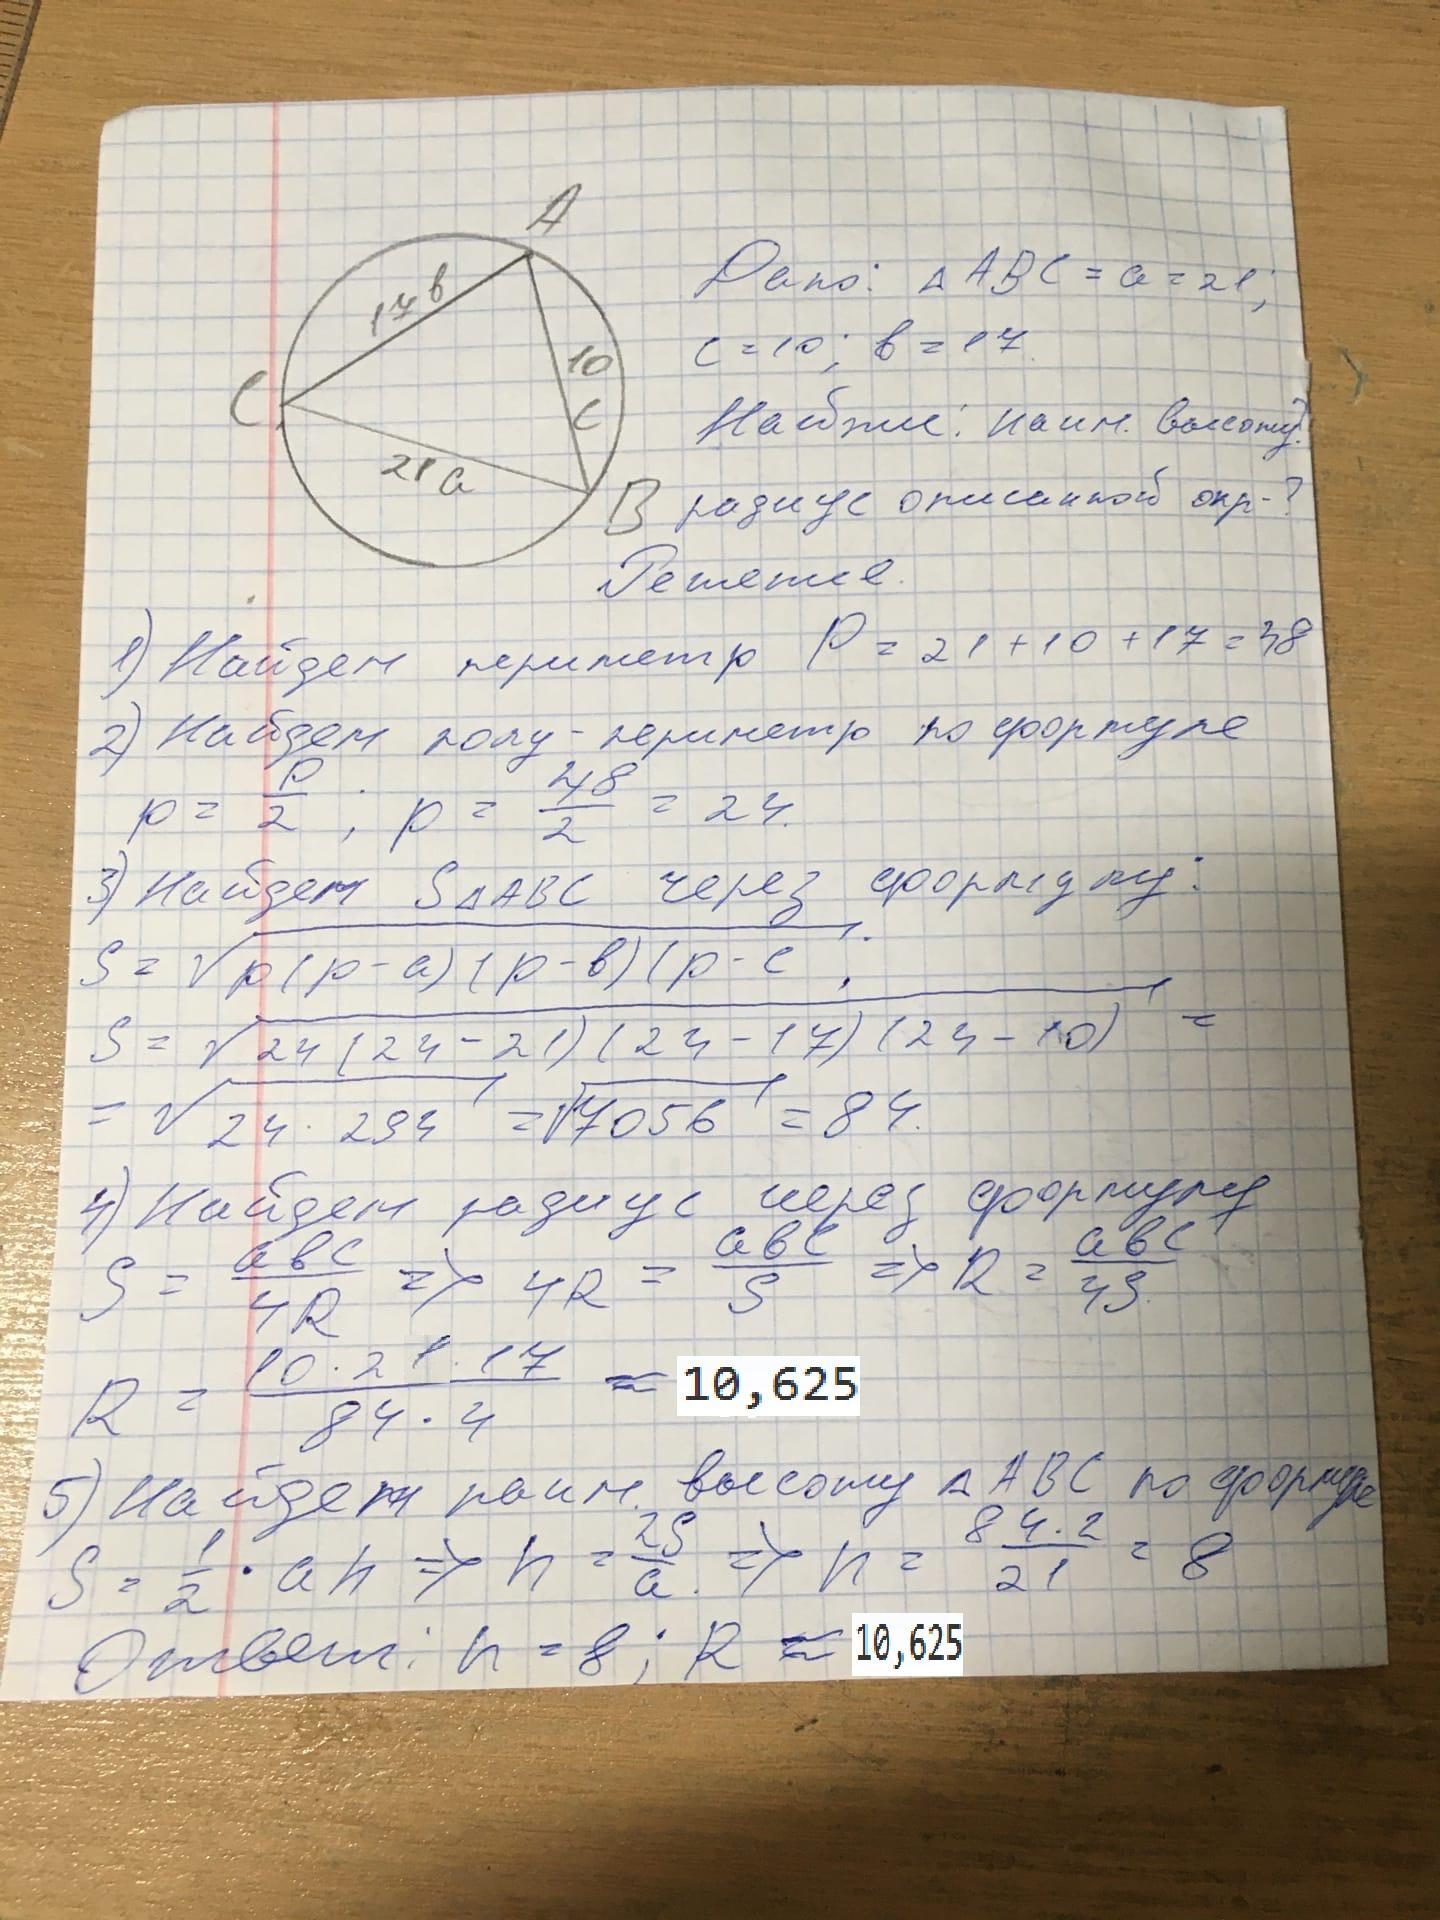 A
17 в
10
C
с
21 а
B
Дано: △ABC = a = 21;
c = 10; в = 17.
Найти: наим. высоту?
радиус описанной окр-?
Решение.
1) Найдем периметр P = 21 + 10 + 17 = 48
2) Найдем полу-периметр по формуле
p = P/2 ; p = 48/2 = 24.
3) Найдем S△ABC через формулу:
S = √p(p-a)(p-в)(p-c ;
S = √24(24-21)(24-17)(24-10) =
= √24·294 = √7056 = 84.
4) Найдем радиус через формулу
S = aвc/4R => 4R = aвc/S => R = aвc/4S.
R = 10·21·17/84·4 ≈ 10,625
5) Найдем наим. высоту △ABC по формуле
S = 1/2 · ah => h = 2S/a. => h = 84·2/21 = 8
Ответ: h = 8; R ≈ 10,625